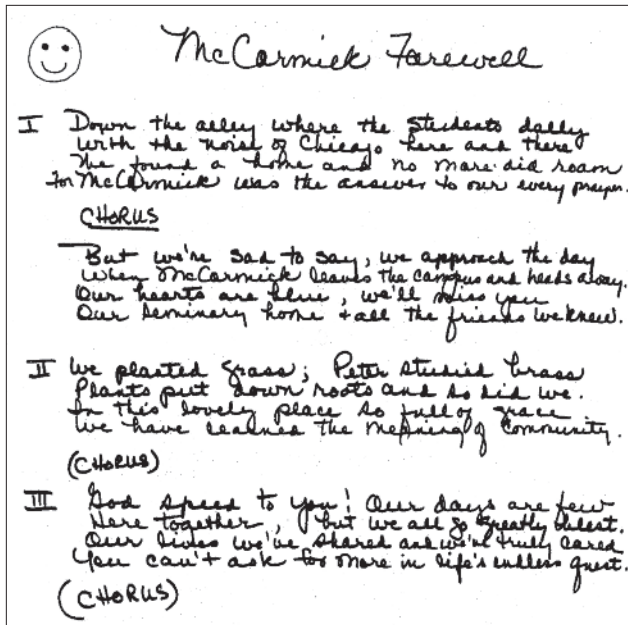 McCormick Farewell
I Down the alley where the students dally
with the noise of Chicago here and there
We found a home and no more did roam
For McCormick was the answer to our every prayer.
CHORUS
But we're sad to say, we approach the day
When McCormick leaves the campus and heads away.
Our hearts are blue, we'll miss you
Our seminary home + all the friends we knew.
II We planted grass; Peter studied brass
Plants put down roots and so did we.
In this lovely place so full of grace
We have learned the meaning of community.
(CHORUS)
III God speed to you! Our days are few
Here together, but we all go greatly blest.
Our lives we've shared and we've truly cared
You can't ask for more in life's endless quest.
(CHORUS)